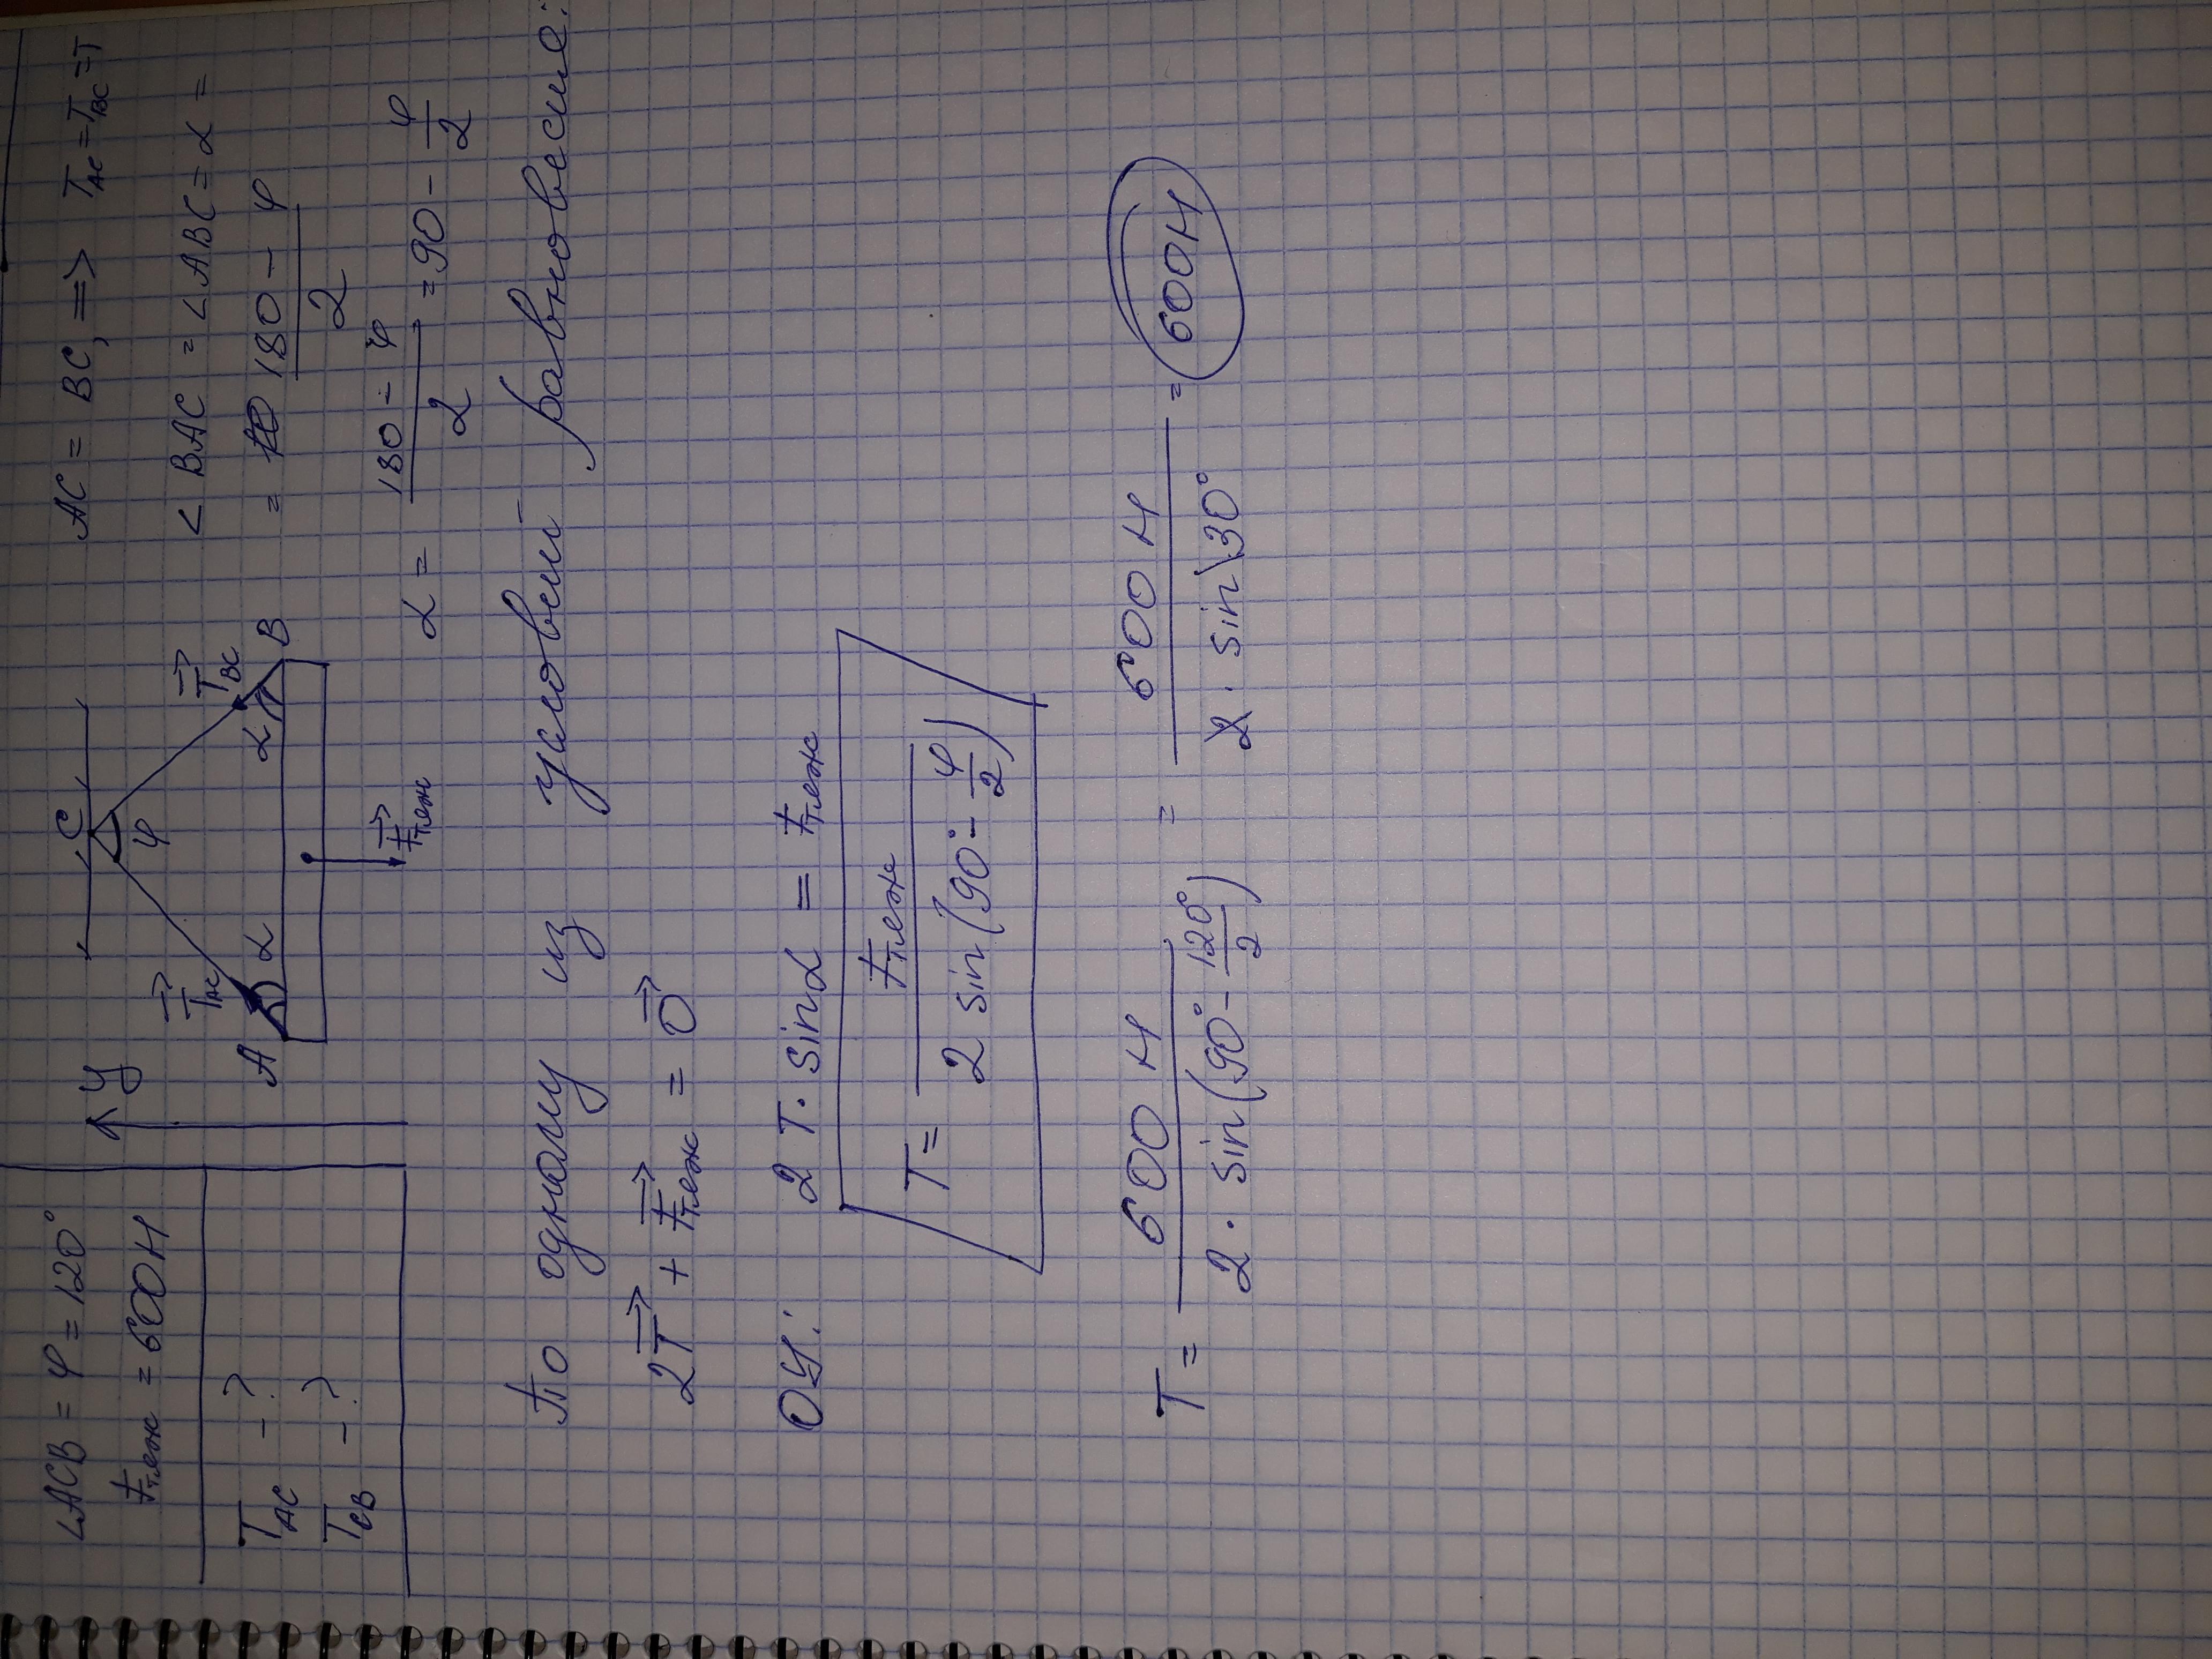 ∠ACB = φ = 120°
Fтяж = 600Н
TAC - ?
TCB - ?
y
C
φ
TAC
TBC
A
α
α
B
Fтяж
AC = BC, => TAC = TBC = T
∠BAC = ∠ABC = α =
= (180 - φ)/2
α = (180 - φ)/2 = 90 - φ/2
По одному из условий равновесие:
2T + Fтяж = 0
OY: 2T · sinα = Fтяж
T = Fтяж / (2 sin(90° - φ/2))
T = 600 Н / (2 · sin(90° - 120°/2)) = 600 Н / (2 · sin 30°) = 600Н